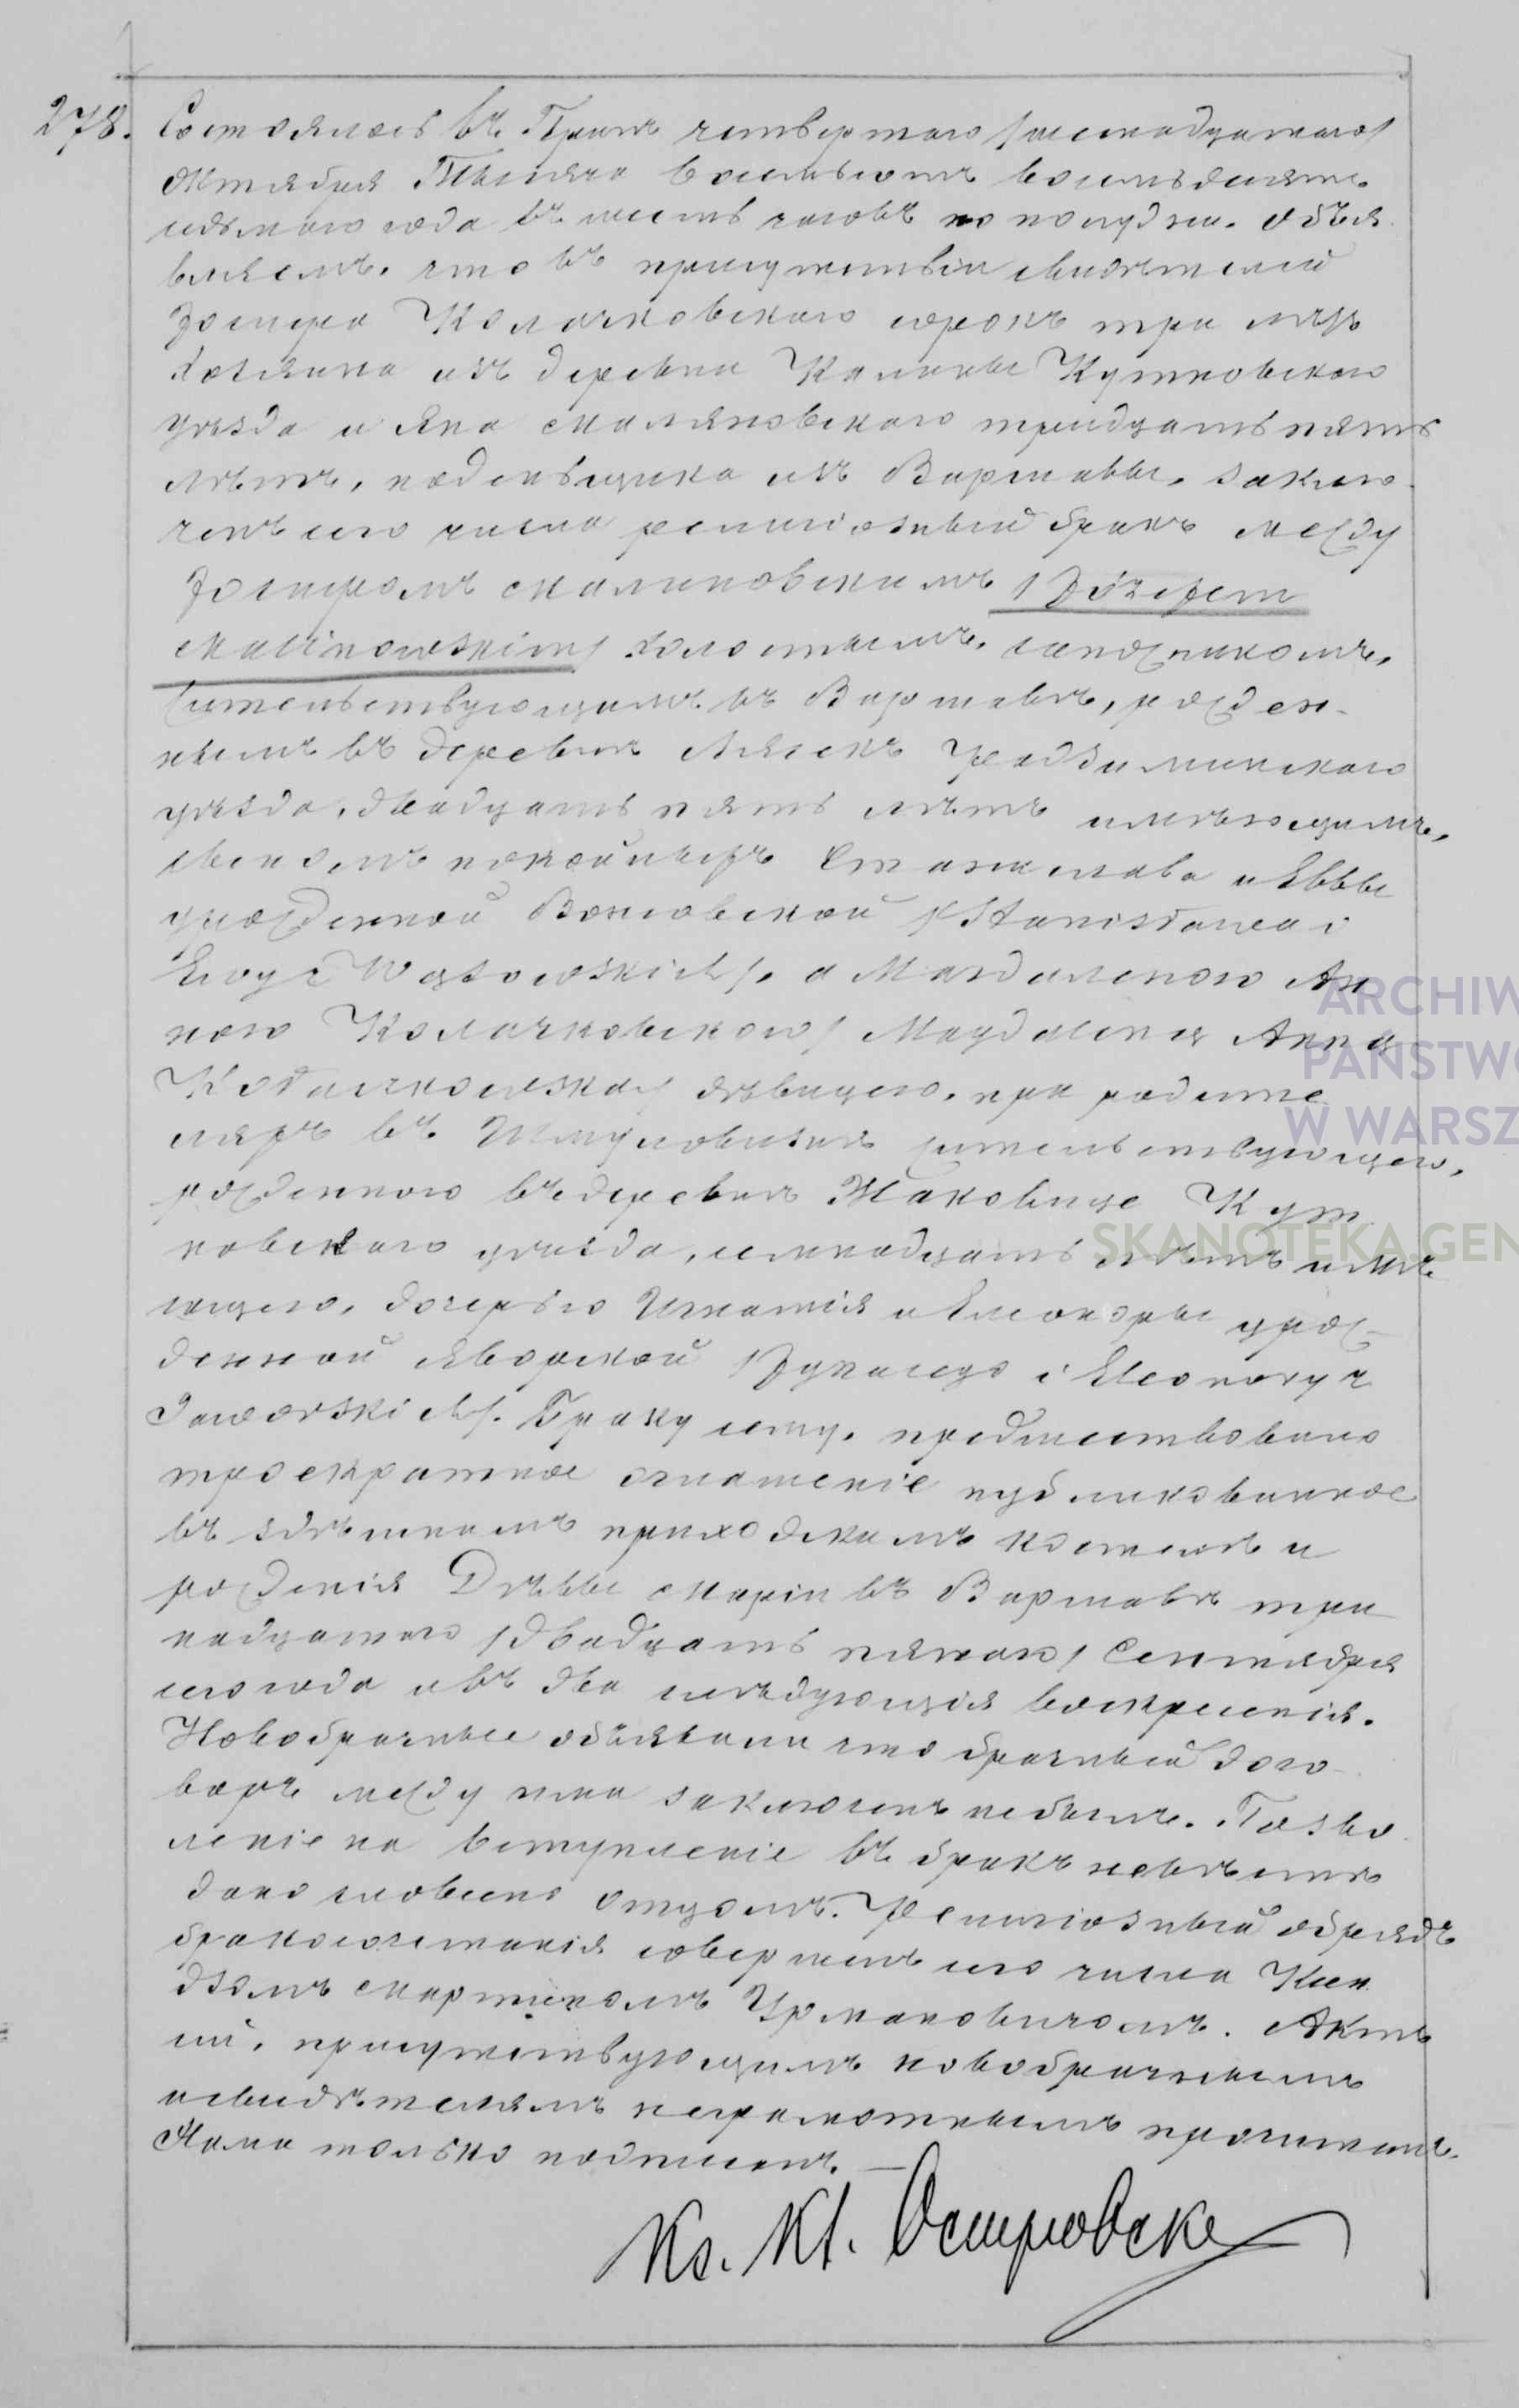 278. Состоялось въ Прагѣ четвертаго /шестнадцатаго/
Октября Тысяча восемьсотъ восемьдесятъ
седьмаго года въ шесть часовъ по полудни. Объя
вляемъ, что въ присутствіи свидѣтелей
Іосифа Колачковскаго сорокъ три лѣтъ
хозяина изъ деревни Кутновскаго
уѣзда и Яна Маляновскаго тридцать пять
лѣтъ, поденьщика изъ Варшавы, заклю
ченъ сего числа религіозный бракъ между
Іосифомъ Малиновскимъ /Józefem
Malinowskim/ холостымъ, сапожникомъ,
жительствующимъ въ Варшавѣ, рожден-
нымъ въ деревнѣ Радзиминскаго
уѣзда, двадцать пять лѣтъ имѣющимъ,
сыномъ покойныхъ Станислава и Еввы
урожденной Вонсовской /Stanisława i
Ewy z Wąsowskich/, а Магдаленою Ан
ною Колачковскою /Magdaleną Anną
Kołaczkowską/ дѣвицею, при родите
ляхъ въ Шмуловизнѣ жительствующею,
рожденною въ деревнѣ Жаковице Кут
новскаго уѣзда, семнадцать лѣтъ имѣ
ющею, дочерью Игнатія и Елеоноры урож-
денной Яворской /Ignacego i Eleonory z
Jaworskich/. Браку сему, предшествовало
троекратное оглашеніе публикованное
въ здѣшнемъ приходскимъ костелѣ и
рожденія Дѣвы Маріи въ Варшавѣ три
надцатаго /двадцать пятаго/ Сентября
сего года и въ два слѣдующія воскресенія.
Новобрачные объявили что брачный дого-
воръ между ими заключенъ небылъ. Позво
леніе на вступленіе въ бракъ невѣстѣ
дано словесно отцомъ. Религіозный обрядъ
бракосочетанія совершенъ сего числа Ксен
дзомъ Мартиномъ Урмановичомъ. Актъ
сій, присутствующимъ новобрачнымъ
и свидѣтелямъ неграмотнымъ прочитанъ,
Нами только подписанъ. —
Кс. Кл. Островски